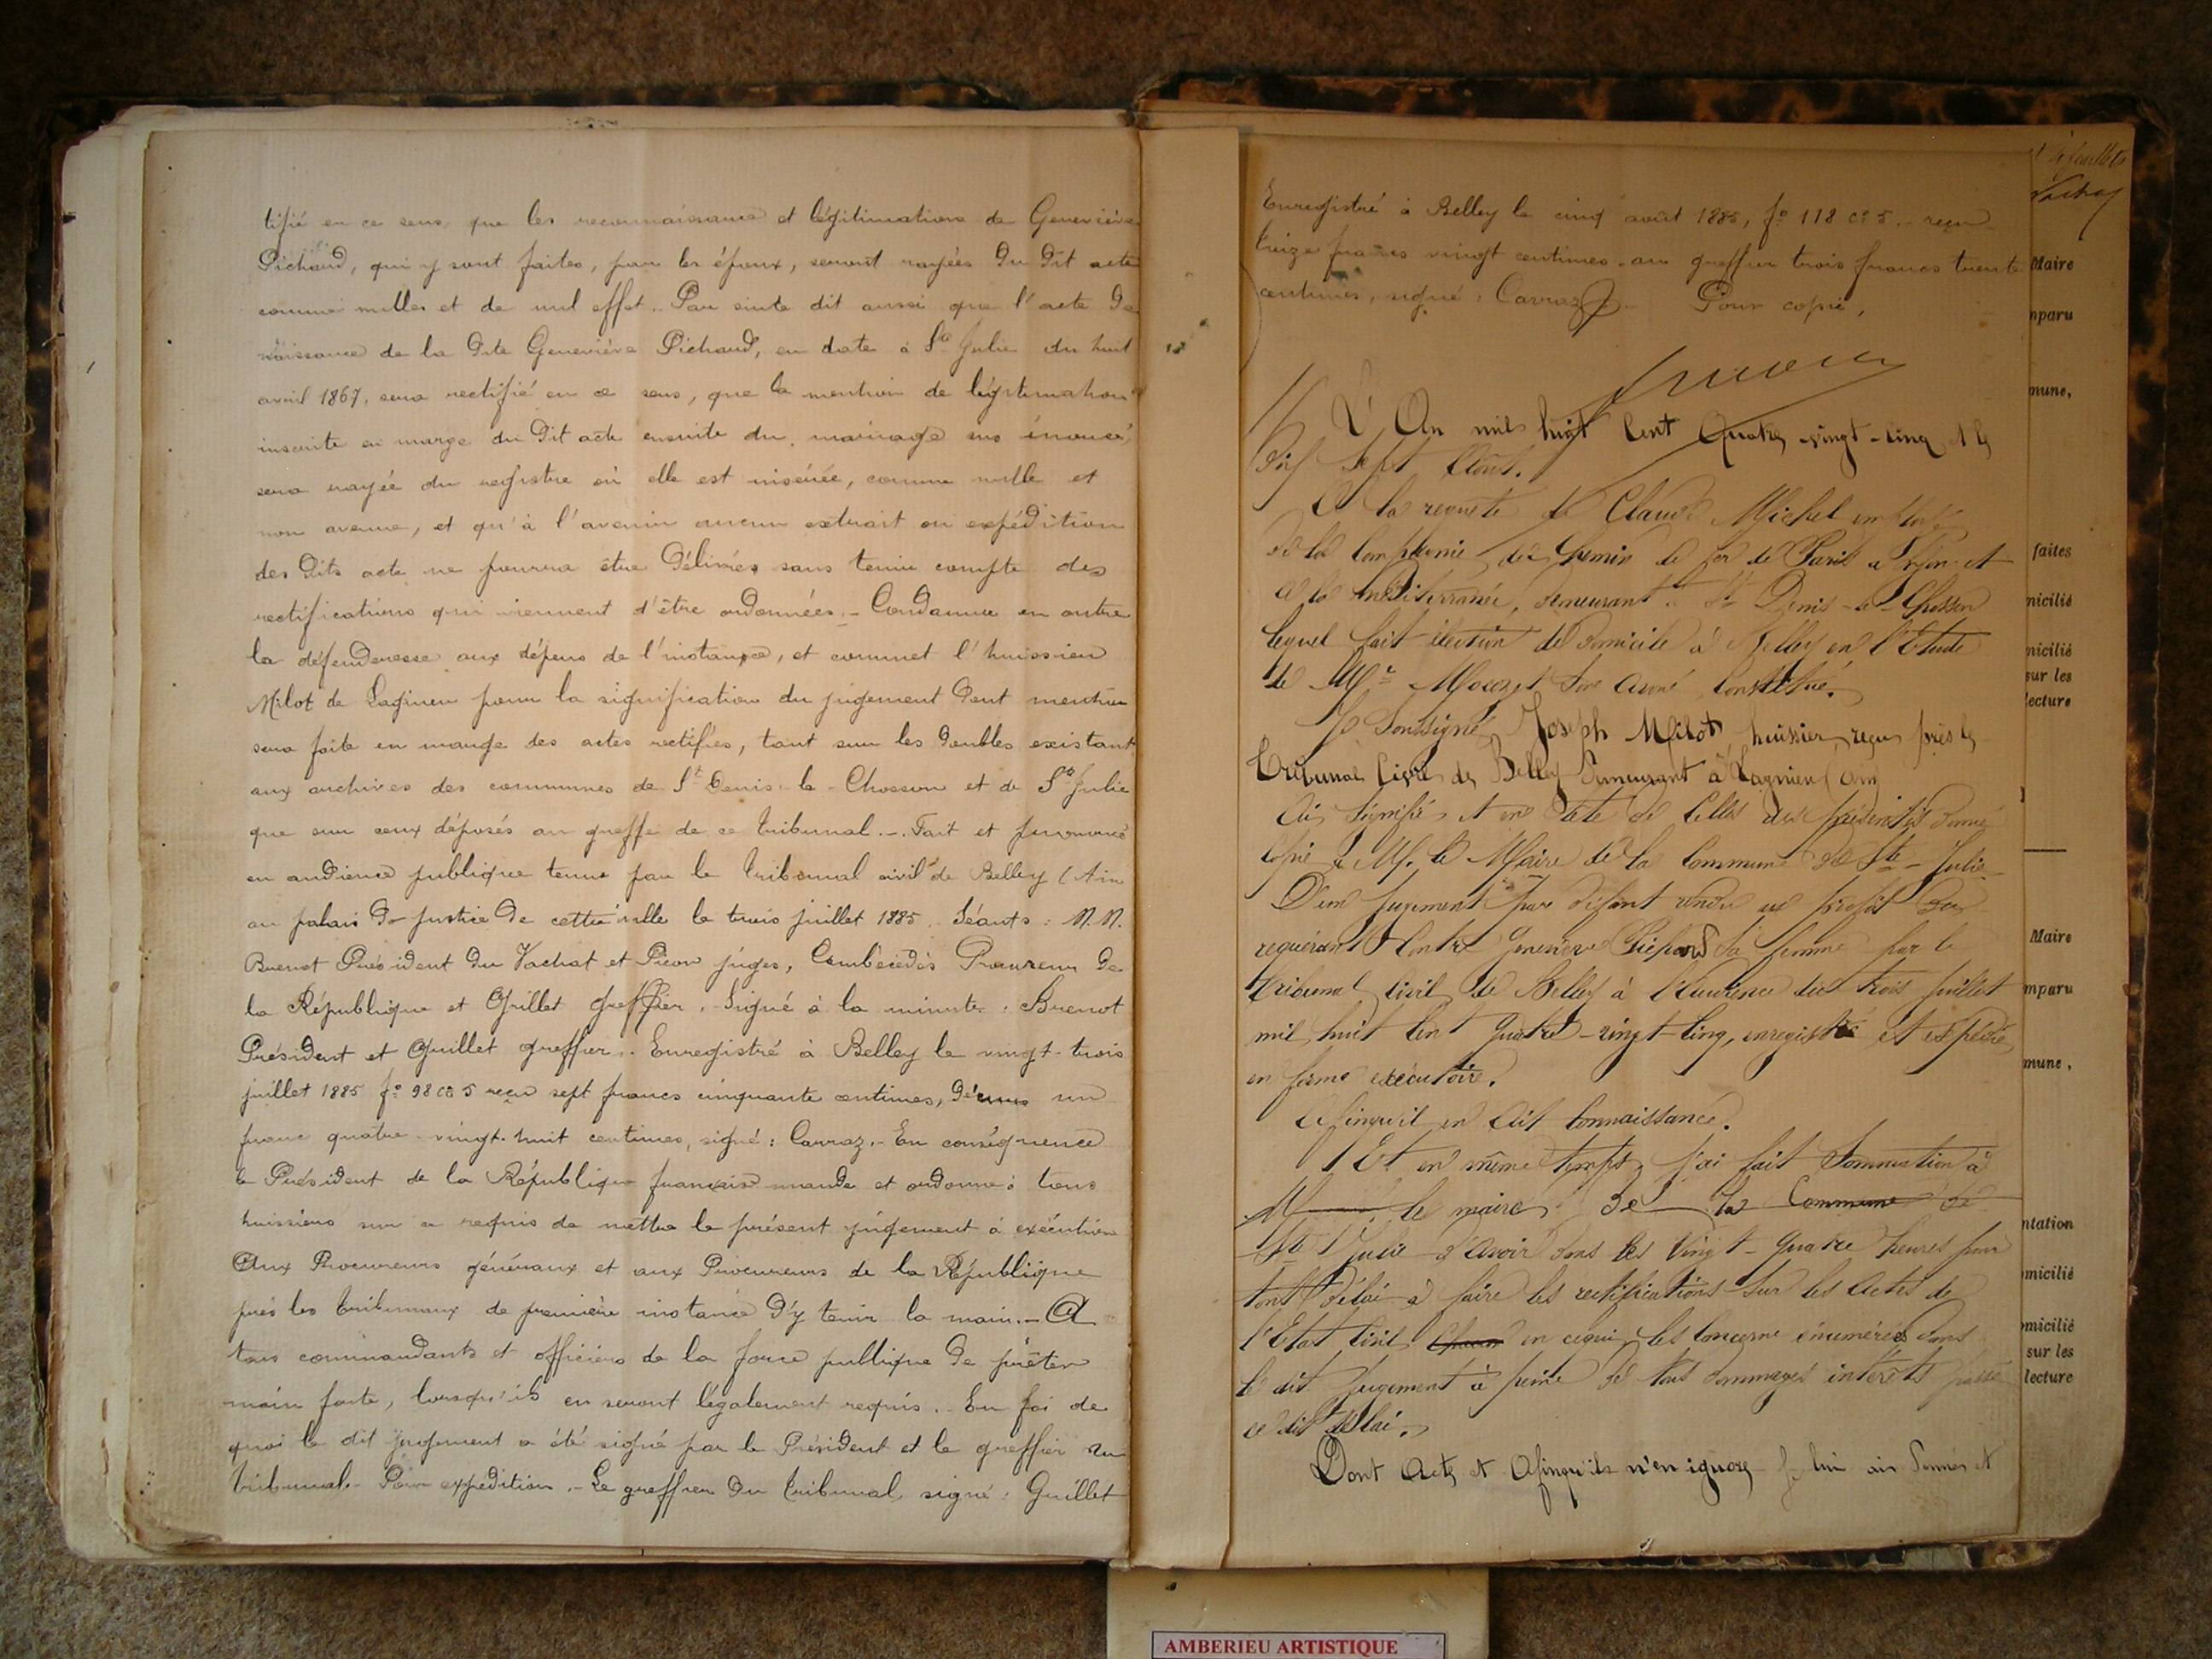 tifié en ce sens que les reconnaissance et légitimation de Geneviève
Pichaud, qui y sont faites, par les époux, seront rayées du dit acte
comme nulles et de nul effet. Par suite dit aussi que l'acte de
naissance de la dite Geneviève Pichaud, en date à Ste Julie du huit
avril 1867, sera rectifié en ce sens, que la mention de légitimation
inscrite en marge du dit acte ensuite du mariage sus énoncé
sera rayée du registre où elle est insérée, comme nulle et
non avenue, et qu'à l'avenir aucun extrait ou expédition
des dits acte ne pourra être délivrés sans tenir compte des
rectifications qui viennent d'être ordonnées. - Condamne en outre
la défenderesse aux dépens de l'instance, et commet l'huissier
Milot de Lagnieu pour la signification du jugement dont mention
sera faite en marge des actes rectifiés, tant sur les doubles existant
aux archives des communes de St Denis-le-Chosson et de Ste Julie
que sur ceux déposés au greffe de ce tribunal. - Fait et prononcé
en audience publique tenue par le tribunal civil de Belley (Ain
au palais de justice de cette ville le trois juillet 1885. Séants : M.M.
Buenot Président du Vachat et Picon juges, Procureur de
la République et Grillet greffier. Signé à la minute : Buenot
Président et Guillet greffier. Enregistré à Belley le vingt-trois
juillet 1885 fo 98 co 5 reçu sept francs cinquante centimes, décimes un
franc quatre-vingt-huit centimes, signé : Carraz. - En conséquence
le Président de la République française mande et ordonne à tous
huissiers sur ce requis de mettre le présent jugement à exécution
Aux Procureurs généraux et aux Procureurs de la République
près les tribunaux de première instance d'y tenir la main. - A
tous commandants et officiers de la force publique de prêter
main forte, lorsqu'ils en seront légalement requis. En foi de
quoi le dit jugement a été signé par le Président et le greffier du
tribunal. - Pour expédition. - Le greffier du tribunal signé : Guillet
Enregistré à Belley le cinq août 1885, fo 118 co 5. - reçu
treize francs vingt centimes - au greffier trois francs trente
centimes, signé : Carraz. Pour copie,
L'An mil huit Cent Quatre-vingt-cinq et le
Dix Sept Août.
A la requête de Claude Michel employé
de la Compagnie des Chemin de fer de Paris à Lyon et
à la Méditerranée, demeurant à St Denis-le-Chosson
lequel fait élection de domicile à Belley en l'Etude
de Me son avoué Constitué.
Je Soussigné, Joseph Milot, huissier reçu près le
Tribunal Civil de Belley Demeurant à Lagnieu (Ain)
Ai Signifié et en tête de Celles des présentes donné
Copie à M. le Maire de la Commune de Ste-Julie
D'un Jugement par défaut rendu au profit du
requérant Contre Geneviève Pichaud sa femme par le
Tribunal Civil de Belley à l'audience du trois juillet
mil huit Cent quatre-vingt Cinq, enregistré et expédié
en forme exécutoire.
Afin qu'il en Ait Connaissance.
Et en même temps, j'ai fait Sommation à
M le maire de la Commune de
Ste Julie d'avoir dans les Vingt-Quatre heures pour
tout délai à faire les rectifications Sur les Actes de
l'Etat Civil en ce qui les Concerne énumérés dans
le dit Jugement à peine de tous dommages intérêts passé
ce dit délai.
Dont Acte et Afin qu'ils n'en ignore je lui ai donné et
Maire
mparu
mune,
faites
nicilié
nicilié
sur les
lecture
Maire
mparu
mune,
ntation
omicilié
omicilié
sur les
lecture
AMBERIEU ARTISTIQUE